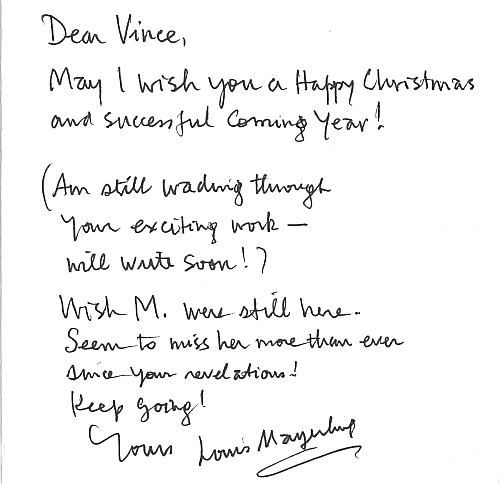 Dear Vince,
May I wish you a Happy Christmas
and successful Coming Year!
(Am still wading through
your exciting work –
will write soon!)
Wish M. were still here.
Seem to miss her more than ever
since your revelations!
Keep going!
Yours Louis Mayerling